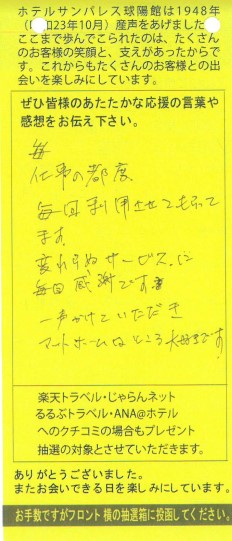 ホテルサンパレス球陽館は1948年
(昭和23年10月)産声をあげました。
ここまで歩んでこられたのは、たくさん
のお客様の笑顔と、支えがあったからで
す。これからもたくさんのお客様との出
会いを楽しみにしています。
ぜひ皆様のあたたかな応援の言葉や
感想をお伝え下さい。
毎
仕事の都度
毎回利用させてもらって
ます。
変わらぬサービスに
毎回感謝です
一声かけていただき
アットホームなところ大好きです!
楽天トラベル・じゃらんネット
るるぶトラベル・ANA@ホテル
へのクチコミの場合もプレゼント
抽選の対象とさせていただきます。
ありがとうございました。
またお会いできる日を楽しみにしています。
お手数ですがフロント横の抽選箱に投函してください。